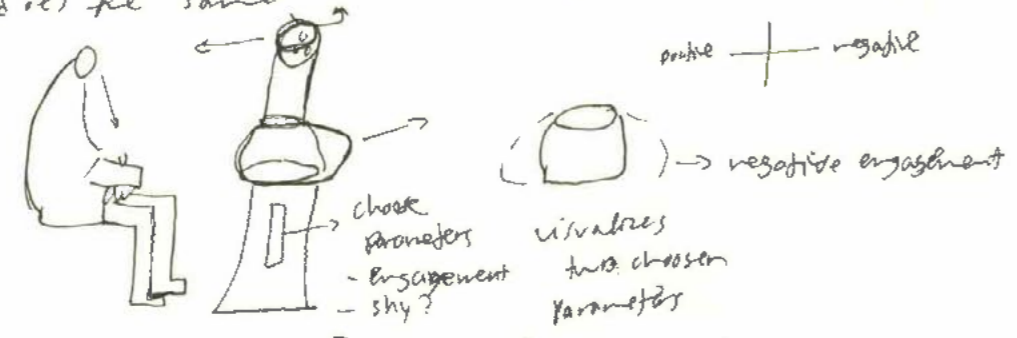 does the same
positive negative
→ negative engagement
choose
parameters
- engagement
- shy?
visualizes
two choosen
parameters